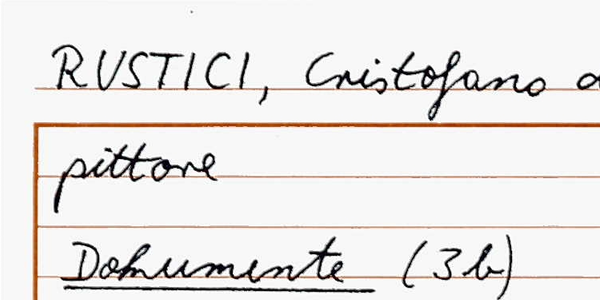 RUSTICI, Cristofano
pittore
Dokumente (3b)